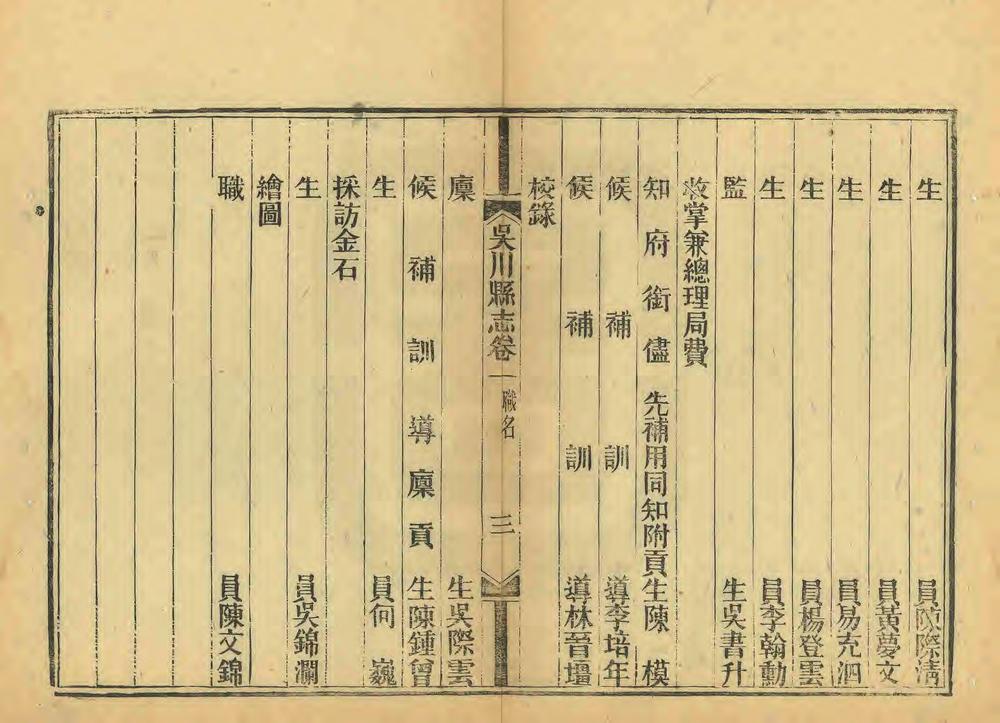 生員陳際清
生員黃夢文
生員易充泗
生員楊登雲
生員李翰勳
監生吳書升
收掌兼總理局費
知府銜儘先補用同知附貢生陳模
候補訓導李培年
候補訓導林晉堦
校錄
吳川縣志卷一 職名 三
廩生吳際雲
候補訓導廩貢生陳鍾曾
生員何巍
採訪金石
生員吳錦瀾
繪圖
職員陳文錦